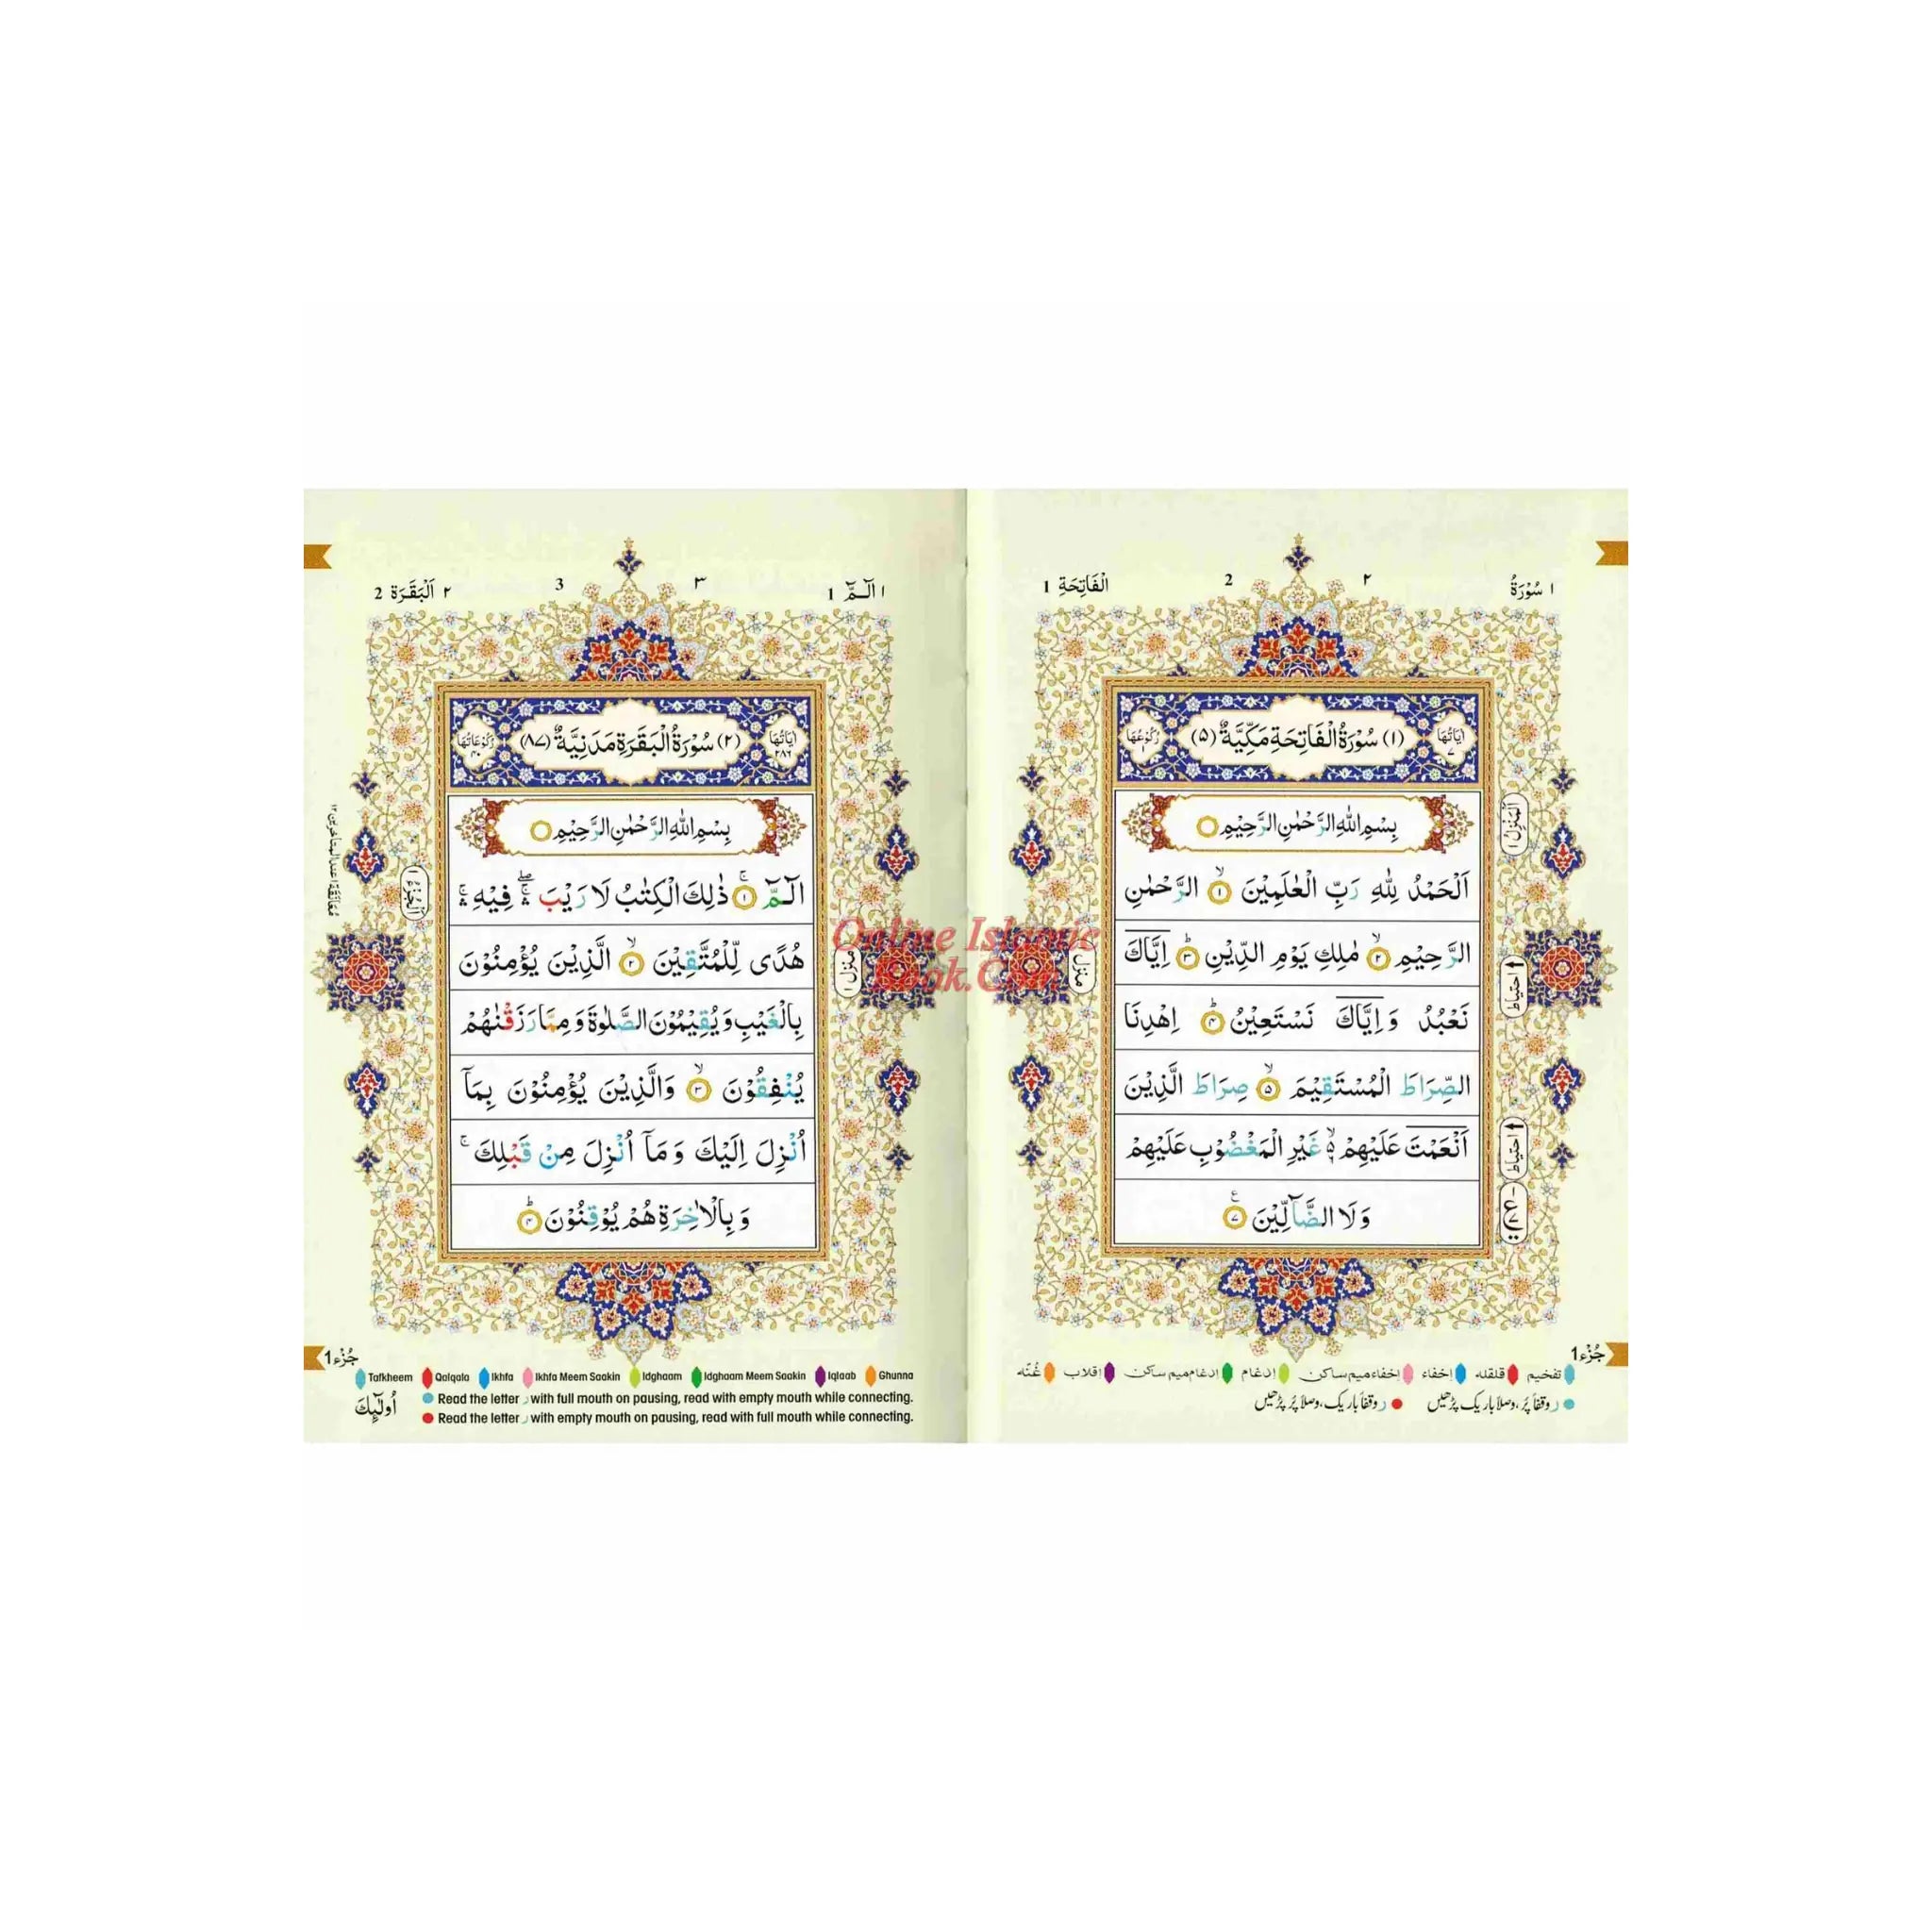 ١ سُوْرَةُ
٢
2
الْفَاتِحَةِ 1
اٰيَاتُهَا
٧
(١) سُوْرَةُ الْفَاتِحَةِ مَكِّيَّةٌ (٥)
رُكُوْعُهَا
١
بِسْمِ اللّٰهِ الرَّحْمٰنِ الرَّحِيْمِ
اَلْحَمْدُ لِلّٰهِ رَبِّ الْعٰلَمِيْنَ ۙ ١ الرَّحْمٰنِ
الرَّحِيْمِ ۙ ٢ مٰلِكِ يَوْمِ الدِّيْنِ ؕ ٣ اِيَّاكَ
نَعْبُدُ وَ اِيَّاكَ نَسْتَعِيْنُ ؕ ٤ اِهْدِنَا
الصِّرَاطَ الْمُسْتَقِيْمَ ۙ ٥ صِرَاطَ الَّذِيْنَ
اَنْعَمْتَ عَلَيْهِمْ ۙ۬ غَيْرِ الْمَغْضُوْبِ عَلَيْهِمْ
وَلَا الضَّآلِّيْنَ ٧
اَلْمَنْزِل ١
احتیاط
احتیاط
منزل
جُزْء 1
تفخیم قلقله إخفاء إخفاء میم ساکن إدغام إدغام میم ساکن إقلاب غُنّه
ر وقفاً پُر، وصلاً باریک پڑھیں
ر وقفاً باریک، وصلاً پُر پڑھیں
١ الٓـمّٓ 1
٣
3
٢ اَلْبَقَرَة 2
اٰيَاتُهَا
٢٨٦
(٢) سُوْرَةُ الْبَقَرَةِ مَدَنِيَّةٌ (٨٧)
رُكُوْعَاتُهَا
٤٠
بِسْمِ اللّٰهِ الرَّحْمٰنِ الرَّحِيْمِ
الٓـمّٓ ۚ ١ ذٰلِكَ الْكِتٰبُ لَا رَيْبَ ۛۖۚ فِيْهِ ۛۚ
هُدًى لِّلْمُتَّقِيْنَ ۙ ٢ الَّذِيْنَ يُؤْمِنُوْنَ
بِالْغَيْبِ وَ يُقِيْمُوْنَ الصَّلٰوةَ وَ مِمَّا رَزَقْنٰهُمْ
يُنْفِقُوْنَ ۙ ٣ وَالَّذِيْنَ يُؤْمِنُوْنَ بِمَآ
اُنْزِلَ اِلَيْكَ وَ مَآ اُنْزِلَ مِنْ قَبْلِكَ ۚ
وَ بِالْاٰخِرَةِ هُمْ يُوْقِنُوْنَ ؕ ٤
منزل ١
اَلْجُزْءُ ١
جُزْء 1
Tafkheem Qalqala Ikhfa Ikhfa Meem Saakin Idghaam Idghaam Meem Saakin Iqlaab Ghunna
Read the letter ر with full mouth on pausing, read with empty mouth while connecting.
Read the letter ر with empty mouth on pausing, read with full mouth while connecting.
اُولٰٓئِكَ
Online Islamic
Book.Com